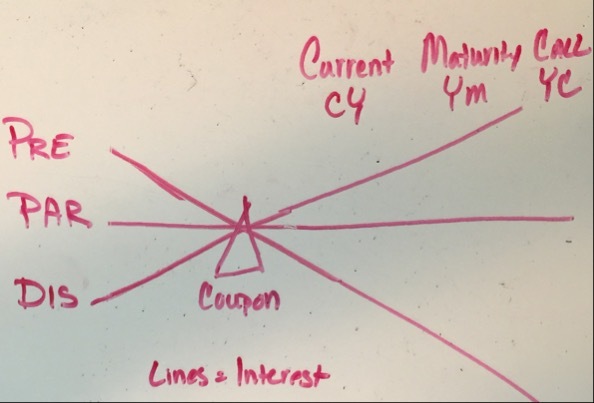 Current Maturity Call
CY YM YC
PRE
PAR
DIS
Coupon
Lines = Interest